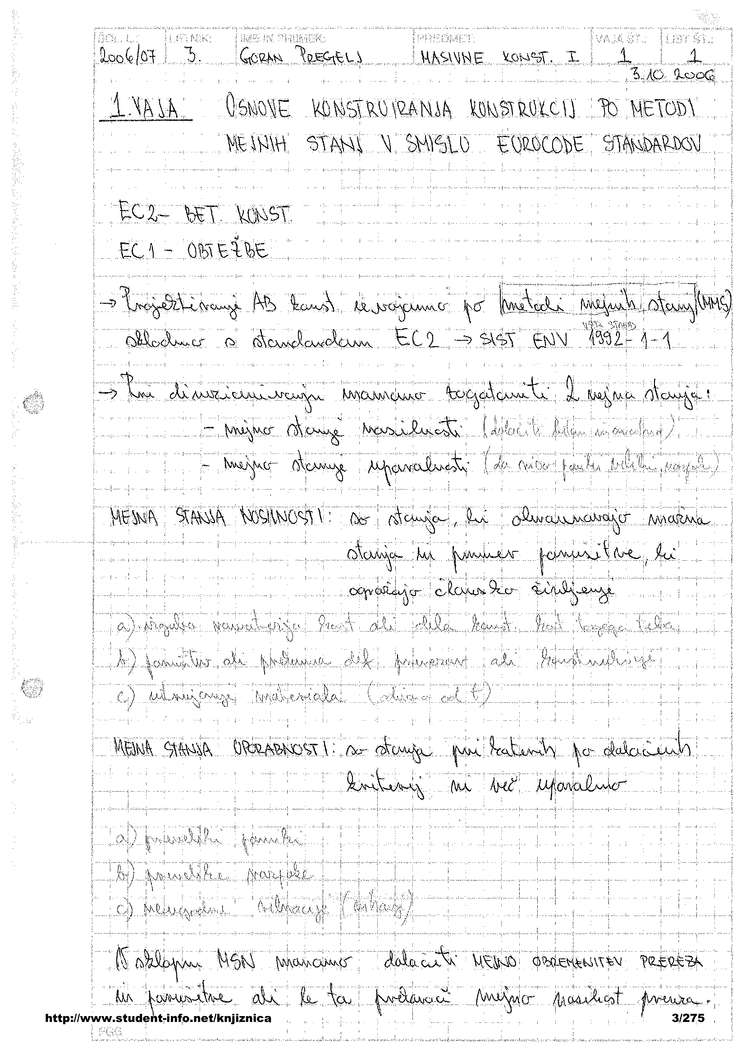 ŠOL. L.: LETNIK: IME IN PRIIMEK: PREDMET: VAJA ŠT.: LIST ŠT.:
2006/07 3. GORAN PREGELJ MASIVNE KONST. I 1 1
3.10.2006
1. VAJA OSNOVE KONSTRUIRANJA KONSTRUKCIJ PO METODI
MEJNIH STANJ V SMISLU EUROCODE STANDARDOV
EC2 - BET. KONST.
EC1 - OBTEŽBE
→ Projektiranje AB konst. izvajamo po metodi mejnih stanj (MMS)
skladno s standardom EC2 → SIST ENV 1992-1-1
→ Pri dimenzioniranju moramo zagotoviti 2 mejna stanja:
- mejno stanje nosilnosti (določiti
- mejno stanje uporabnosti (da niso
MEJNA STANJA NOSILNOSTI: so stanja, ki obravnavajo možna
stanja in primer porušitve, ki
ogrožajo človeško življenje
a) izguba ravnotežja konst. ali dela konst. kot togega telesa
b) porušitev ali prevelika def. prerezov ali konstrukcije
c) utrujanje materiala (odvisno od t)
MEJNA STANJA UPORABNOSTI: so stanja pri katerih po določenih
kriterij ni več uporabno
a) preveliki pomiki
b) prevelike razpoke
c) neugodne vibracije
V sklopu MSN moramo določiti MEJNO OBREMENITEV PREREZA
in porušitve ali le ta prekorači mejno nosilnost prereza.
http://www.student-info.net/knjiznica 3/275
FGG